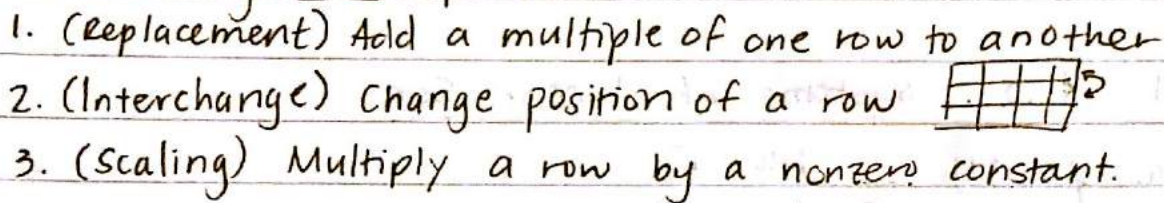 1. (Replacement) Add a multiple of one row to another
2. (Interchange) Change position of a row
3. (Scaling) Multiply a row by a nonzero constant.